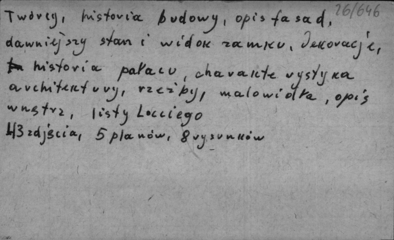 26/646
Twórcy, historia budowy, opis fasad,
dawniejszy stan i widok zamku, dekoracje,
historia pałacu, charakterystyka
architektury, rzeźby, malowidła, opis
wnętrz, listy Locciego
43 zdjęcia, 5 planów, 8 rysunków